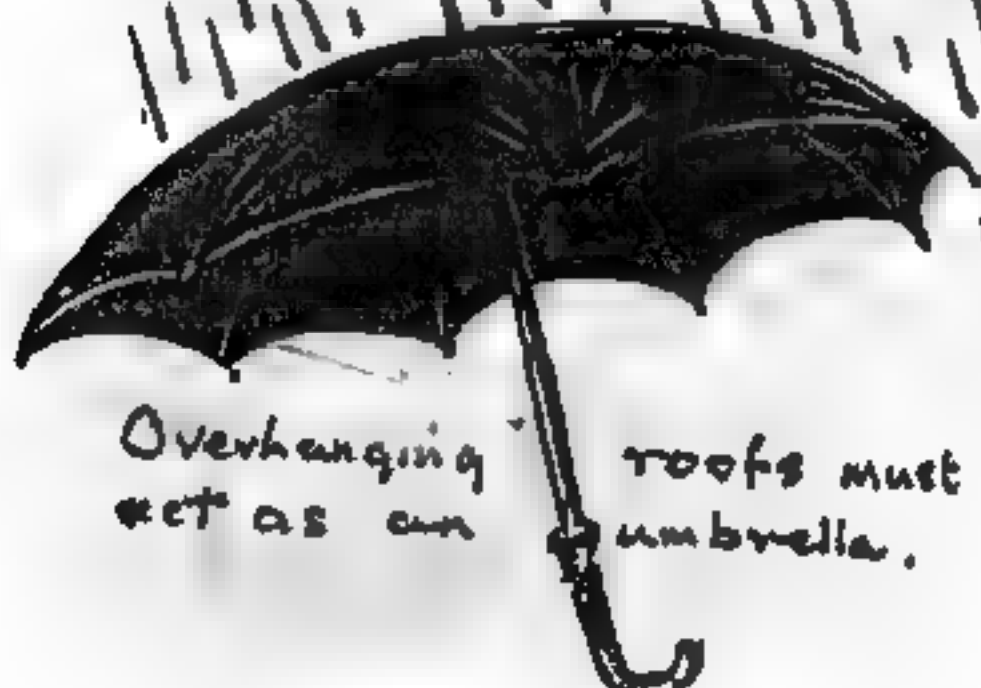 Overhanging roofs must
act as an umbrella.